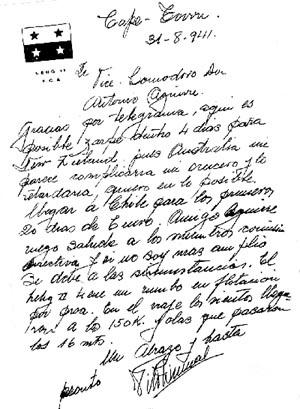 Cape-Town
31-8-941.
LEHG II
Y.C.A.
Vice Comodoro Don
Antonio Aguirre.
Gracias por telegrama, aqui es
posible zarpe dentro 4 dias para
pues Australia me
parece complicaria un crucero y lo
retardaria, quiero en lo posible
llegar a Chile para los primeros
20 dias de Enero. Amigo Aguirre
ruego salude a los miembros comision
directiva y si no soy mas amplio
se debe a las circunstancias. El
Lehg II tiene un rumbo en flotacion
por proa. En el viaje los vientos llega
ron a los 150K. y olas que pasaron
los 16 mts.
Un abrazo y hasta
pronto